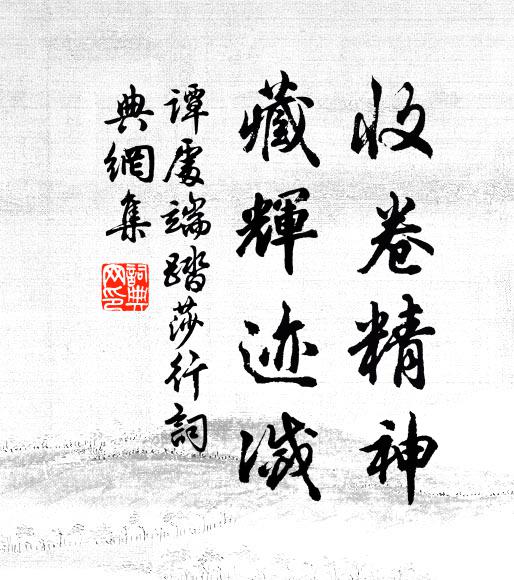 收卷精神
藏輝迹滅
譚處端踏莎行詞
典網集
詞典网印